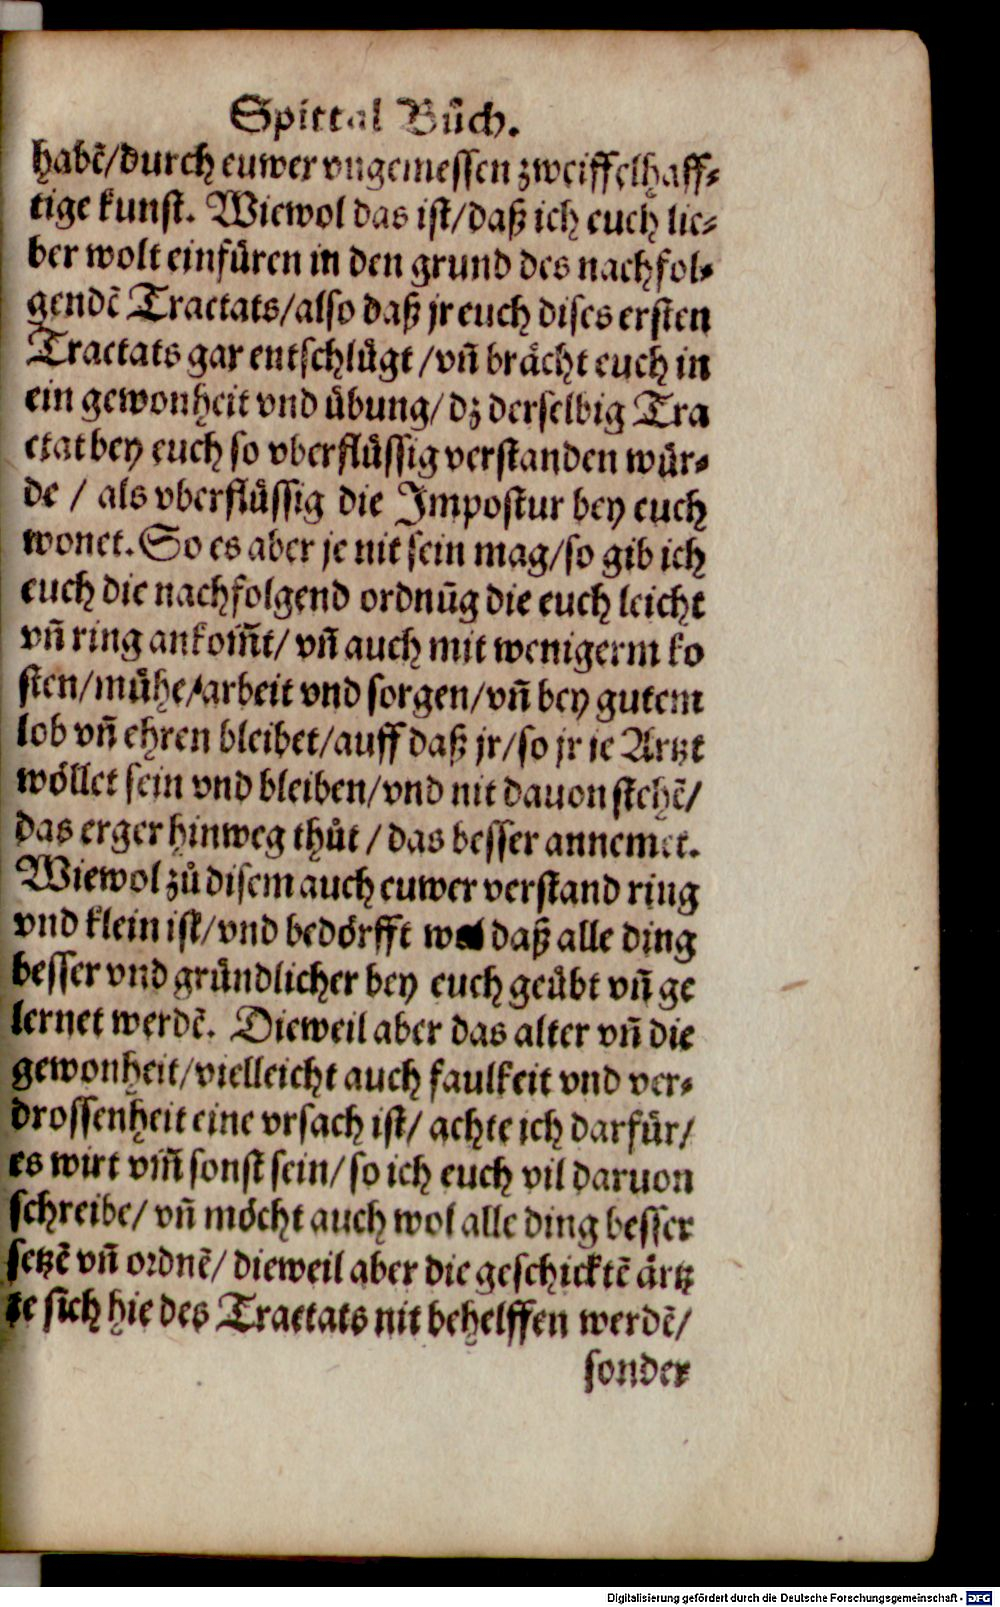 Spittal Bůch.
habē/durch euwer vngemessen zweiffelhaff⸗
tige kunst. Wiewol das ist/daß ich euch lie⸗
ber wolt einfüren in den grund des nachfol⸗
gendē Tractats/also daß jr euch dises ersten
Tractats gar entschlügt/vñ brächt euch in
ein gewonheit vnd übung/dz derselbig Tra
ctat bey euch so vberflüssig verstanden wür⸗
de / als vberflüssig die Impostur bey euch
wonet. So es aber je nit sein mag/so gib ich
euch die nachfolgend ordnūg die euch leicht
vñ ring ankom̃t/ vñ auch mit wenigerm ko
sten/mühe/arbeit vnd sorgen/vñ bey gutem
lob vñ ehren bleibet/auff daß jr/so jr je Artzt
wöllet sein vnd bleiben/vnd nit dauon stehē/
das erger hinweg thůt / das besser annemet.
Wiewol zů disem auch euwer verstand ring
vnd klein ist/vnd bedörfft wol daß alle ding
besser vnd gründlicher bey euch geübt vñ ge
lernet werdē. Dieweil aber das alter vñ die
gewonheit/vielleicht auch faulkeit vnd ver⸗
drossenheit eine vrsach ist/ achte ich darfür/
es wirt vm̃ sonst sein/so ich euch vil daruon
schreibe/ vñ möcht auch wol alle ding besser
setzē vñ ordnē/ dieweil aber die geschicktē ärtz
te sich hie des Tractats nit behelffen werdē/
sonder
Digitalisierung gefördert durch die Deutsche Forschungsgemeinschaft - DFG